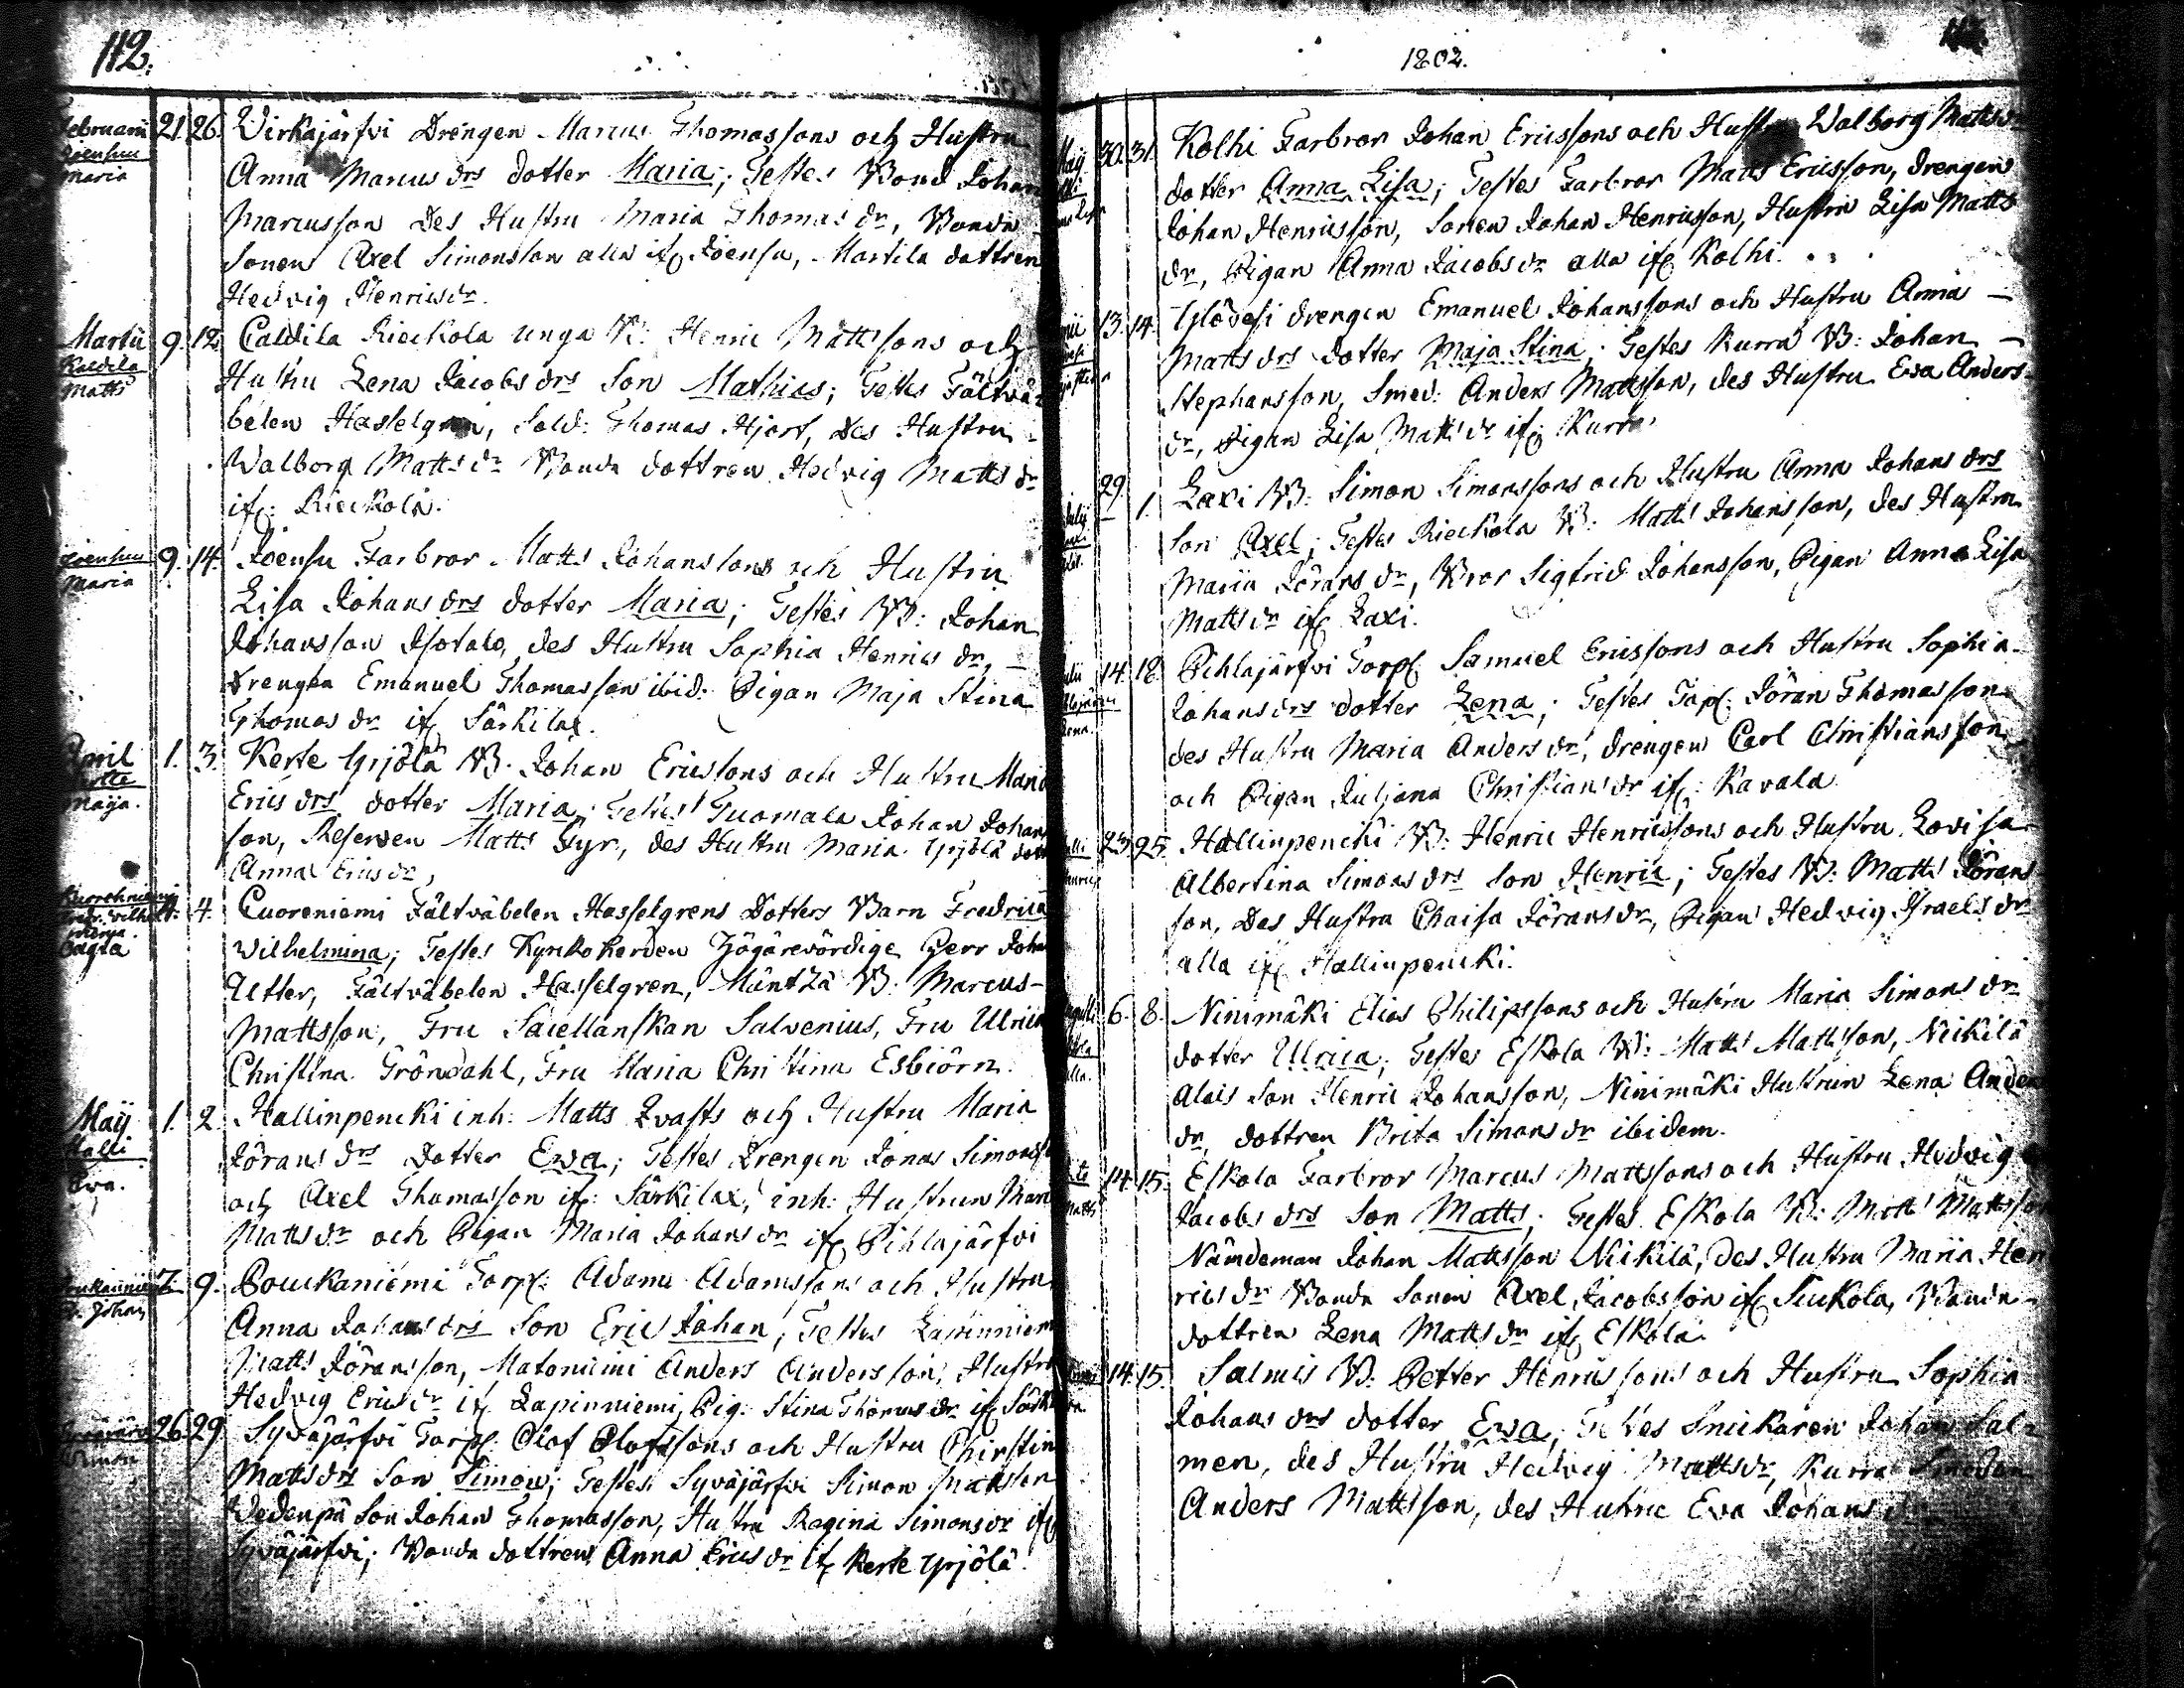 112.
Februarii 21. 26. Virkajärfvi Drengen Marcus Thomassons och Hustru
Joensuu Maria
Anna Marcus drs dotter Maria; Testes Bond Johan
Marcusson Des Hustru Maria Thomas dr, Bonde
Sonen Axel Simonsson alla if Joensu, Martila dottren
Hedvig Henrics dr.
Martii 9. 12. Caldila Rieckola unga B: Henric Mattssons och
Kaldila Matts
Hustru Lena Jacobs drs Son Mathias; Testes Fältvä-
belen Hasselgren, Sold: Thomas Hjort, Des Hustru
Walborg Matts dr Bonde dottren Hedvig Matts dr
if: Rieckola.
Joensuu Maria 9. 14. Joensu Farbror Matts Johanssons och Hustru
Lisa Johans drs dotter Maria; Testes B: Johan
Johansson Isotalo, des Hustru Sophia Henrics dr, –
Drengen Emanuel Thomasson ibid: Pigan Maja Stina
Thomas dr if Särkilax.
April 1. 3. Kerte Yrjölä B. Johan Ericssons och Hustru Maria
Maija.
Erics drs dotter Maria; Testes Tuomala Johan Johans
son, Reserven Matts Gyr, des Hustru Maria. Yrjölä dott
Anna Erics dr,
4. Cuoreniemi Fältväbelen Hasselgrens Dotters Barn Fredrica
Wilhelmina; Testes Kyrkoherden Högärevördige Herr Johan
Utter, Fältväbelen Hasselgren, Mäntzä B: Marcus-
Mattsson, Fru Sacellanskan Salvenius, Fru Ulrica
Christina Gröndahl, Fru Maria Christina Esbiörn.
Maij 1. 2. Hallinpencki inh: Matts Qvasts och Hustru Maria
Halli Eva.
Jörans drs Dotter Ewa; Testes Drengen Jonas Simonss
och Axel Thomasson if: Särkilax, inh: Hustrun Mar
Matts dr och Pigan Maria Johans dr if Pihlajärfvi
7. 9. Pouckaniemi Torp: Adam Adamssons och Hustru
Anna Johans drs Son Eric Johan; Testes Lapinniemi
Matts Jöransson, Matoniemi Anders Andersson, Hustru
Hedvig Erics dr if Lapinniemi, Pig: Stina Thomas dr if Särki
26. 29. Syväjärfvi Torp: Olof Olofssons och Hustru Christin
Simon
Matts drs Son Simon; Testes Syväjärfvi Simon Matsson
Vedenpä Son Johan Thomasson, Hustru Regina Simons dr if
Syväjärfvi; Bonde dottren Anna Erics dr if Kerte Yrjölä.
1802.
Maij 30. 31. Kolhi Farbror Johan Ericssons och Hustru Walborg Matts dr
dotter Anna Lisa; Testes Farbror Matts Ericsson, drengen
Johan Henricsson, Sonen Johan Henricsson, Hustru Lisa Matts
dr, Pigan Anna Jacobs dr alla if Kolhi.
13. 14. Ylödesi drengen Emanuel Johanssons och Hustru Anna –
Matts drs dotter Maja Stina; Testes Kurra B: Johan –
Stephansson, Smed: Anders Mattsson, des Hustru Eva Anders
dr, Pigan Lisa Matts dr if: Kurra
29. 1. Laxi B: Simon Simonssons och Hustru Anna Johans drs
Son Axel; Testes Rieckola B: Matts Johansson, des Hustru
Maria Jörans dr, Bror Sigfrid Johansson, Pigan Anna Lisa
Matts dr if Laxi.
14. 18. Pihlajärfvi Torp: Samuel Ericssons och Hustru Sophia
Johans drs dotter Lena; Testes Torp: Jöran Thomasson
des Hustru Maria Anders dr, drengen Carl Christiansson
och Pigan Juliana Christians dr if: Kavala.
23. 25. Hallinpencki B: Henric Henricssons och Hustru Lovisa
Albertina Simons drs Son Henric; Testes B: Matts Jörans
son, Des Hustru Chaisa Jörans dr, Pigan Hedvig Israels dr
alla if Hallinpencki.
6. 8. Ninimäki Elias Philipssons och Hustru Maria Simons dr
dotter Ulrica; Testes Eskola B: Matts Mattsson, Neikilä
Alois Son Henric Johansson, Ninimäki Hustrun Lena Ander
dr, dottren Brita Simons dr ibidem.
14. 15. Eskola Farbror Marcus Mattssons och Hustru Hedvig
Matts
Jacobs drs Son Matts; Testes Eskola B: Matts Mattsson
Nämdeman Johan Mattsson Neikilä, Des Hustru Maria Hen
rics dr Bonde Sonen Axel Jacobsson if Siukola, Bonde-
dottren Lena Matts dr if Eskola.
14. 15. Salmis B: Petter Henricssons och Hustru Sophia
Johans drs dotter Ewa; Testes Snickaren Johan Sal-
men, des Hustru Hedvig Matts dr, Kurra Smeden
Anders Mattsson, des Hustru Eva Johans